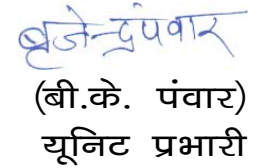 बृजेन्द्र पंवार
(बी.के. पंवार)
यूनिट प्रभारी